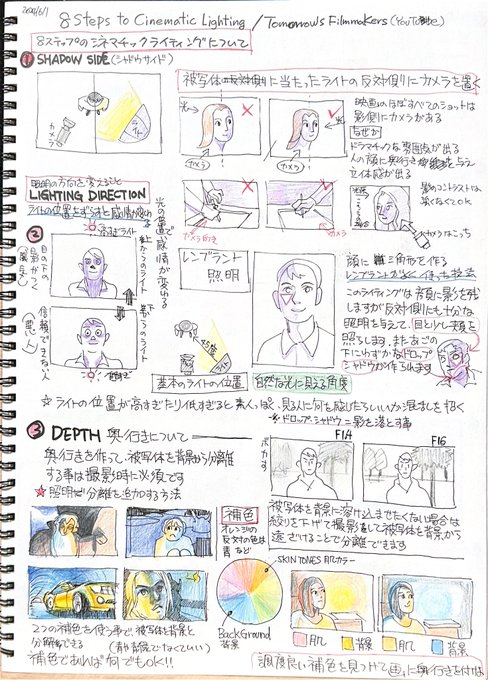 8 Steps to Cinematic Lighting / Tomorrows Filmmakers (YouTube)
8ステップのシネマチックライティングについて
1 SHADOW SIDE (シャドウサイド)
被写体の反対側に当たったライトの反対側にカメラを置く
カメラ
ライト
光
カメラ
光
カメラ
映画のほぼすべてのショットは
影側にカメラがある
なぜか
ドラマチックな雰囲気が出る
人の顔に奥行きを与え
立体感が出る
カメラ向き
カメラ
影のコントラストは
強くなくてOK
カメラはこっち
照明の方向を変えること
LIGHTING DIRECTION
ライトの位置をずらすと感情が変わる
2
高すぎライト
上からのライト
下からのライト
目の下の
影がつく
信頼できない人
(悪人)
光の位置で感情が変わる
レンブラント
照明
45度
ライト
基本のライトの位置
自然な光に見える角度
顔に三角形を作る
レンブラントがよく使った技法
このライティングは顔に影を残
しますが反対側にも十分な
照明を与えて、目と少し頬を
照らします。またあごの
下にわずかなドロップ
シャドウが作られます
☆ライトの位置が高すぎたり低すぎると素人っぽく、見る人に何を感じたらいいか混乱を招く
*ドロップシャドウ=影を落とす事
3 DEPTH 奥行きについて
奥行きを作って、被写体を背景から分離
する事は撮影時に必須です
★照明で分離を追加する方法
ボカす
F1.4
F16
被写体を背景に溶け込ませたくない場合は
絞りを下げて撮影をして被写体を背景から
遠ざけることで分離できます
補色
オレンジの
反対の色は
青など
SKIN TONES 肌カラー
BackGround
背景
肌
背景
肌
背景
2つの補色を使う事で、被写体を背景と
分離できる
(青や背景でなくてもいい)
補色であれば何でもOK!!
調度良い補色を見つけて画に奥行きを付けな